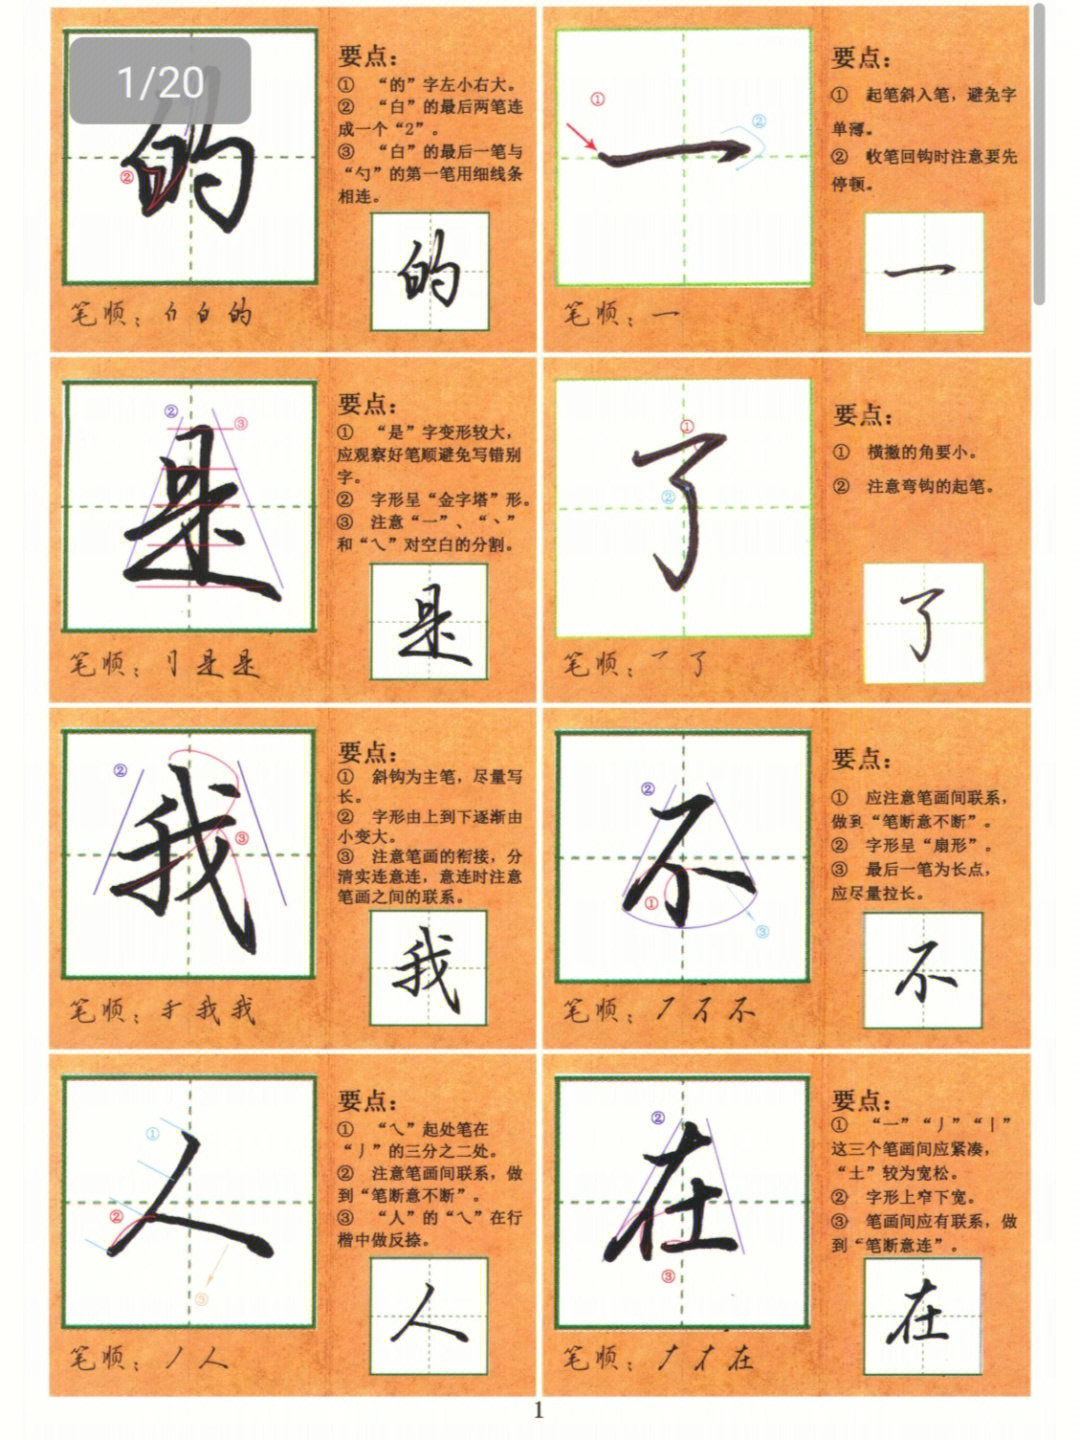 1/20
的
②
要点：
① “的”字左小右大。
② “白”的最后两笔连
成一个“2”。
③ “白”的最后一笔与
“勺”的第一笔用细线条
相连。
的
笔顺：白 的
①
②
一
要点：
① 起笔斜入笔，避免字
单薄。
② 收笔回钩时注意要先
停顿。
一
笔顺：一
②
③
是
要点：
① “是”字变形较大，
应观察好笔顺避免写错别
字。
② 字形呈“金字塔”形。
③ 注意“一”、“丶”
和“乀”对空白的分割。
是
笔顺：是 是
①
②
了
要点：
① 横撇的角要小。
② 注意弯钩的起笔。
了
笔顺：乛 了
②
③
我
要点：
① 斜钩为主笔，尽量写
长。
② 字形由上到下逐渐由
小变大。
③ 注意笔画的衔接，分
清实连意连，意连时注意
笔画之间的联系。
我
笔顺：手 我 我
②
①
③
不
要点：
① 应注意笔画间联系，
做到“笔断意不断”。
② 字形呈“扇形”。
③ 最后一笔为长点，
应尽量拉长。
不
笔顺：丆 不 不
①
②
③
人
要点：
① “乀”起处笔在
“丿”的三分之二处。
② 注意笔画间联系，做
到“笔断意不断”。
③ “人”的“乀”在行
楷中做反捺。
人
笔顺：丿 人
②
③
在
要点：
① “一”“丿”“丨”
这三个笔画间应紧凑，
“土”较为宽松。
② 字形上窄下宽。
③ 笔画间应有联系，做
到“笔断意连”。
在
笔顺：ナ 才 在
1